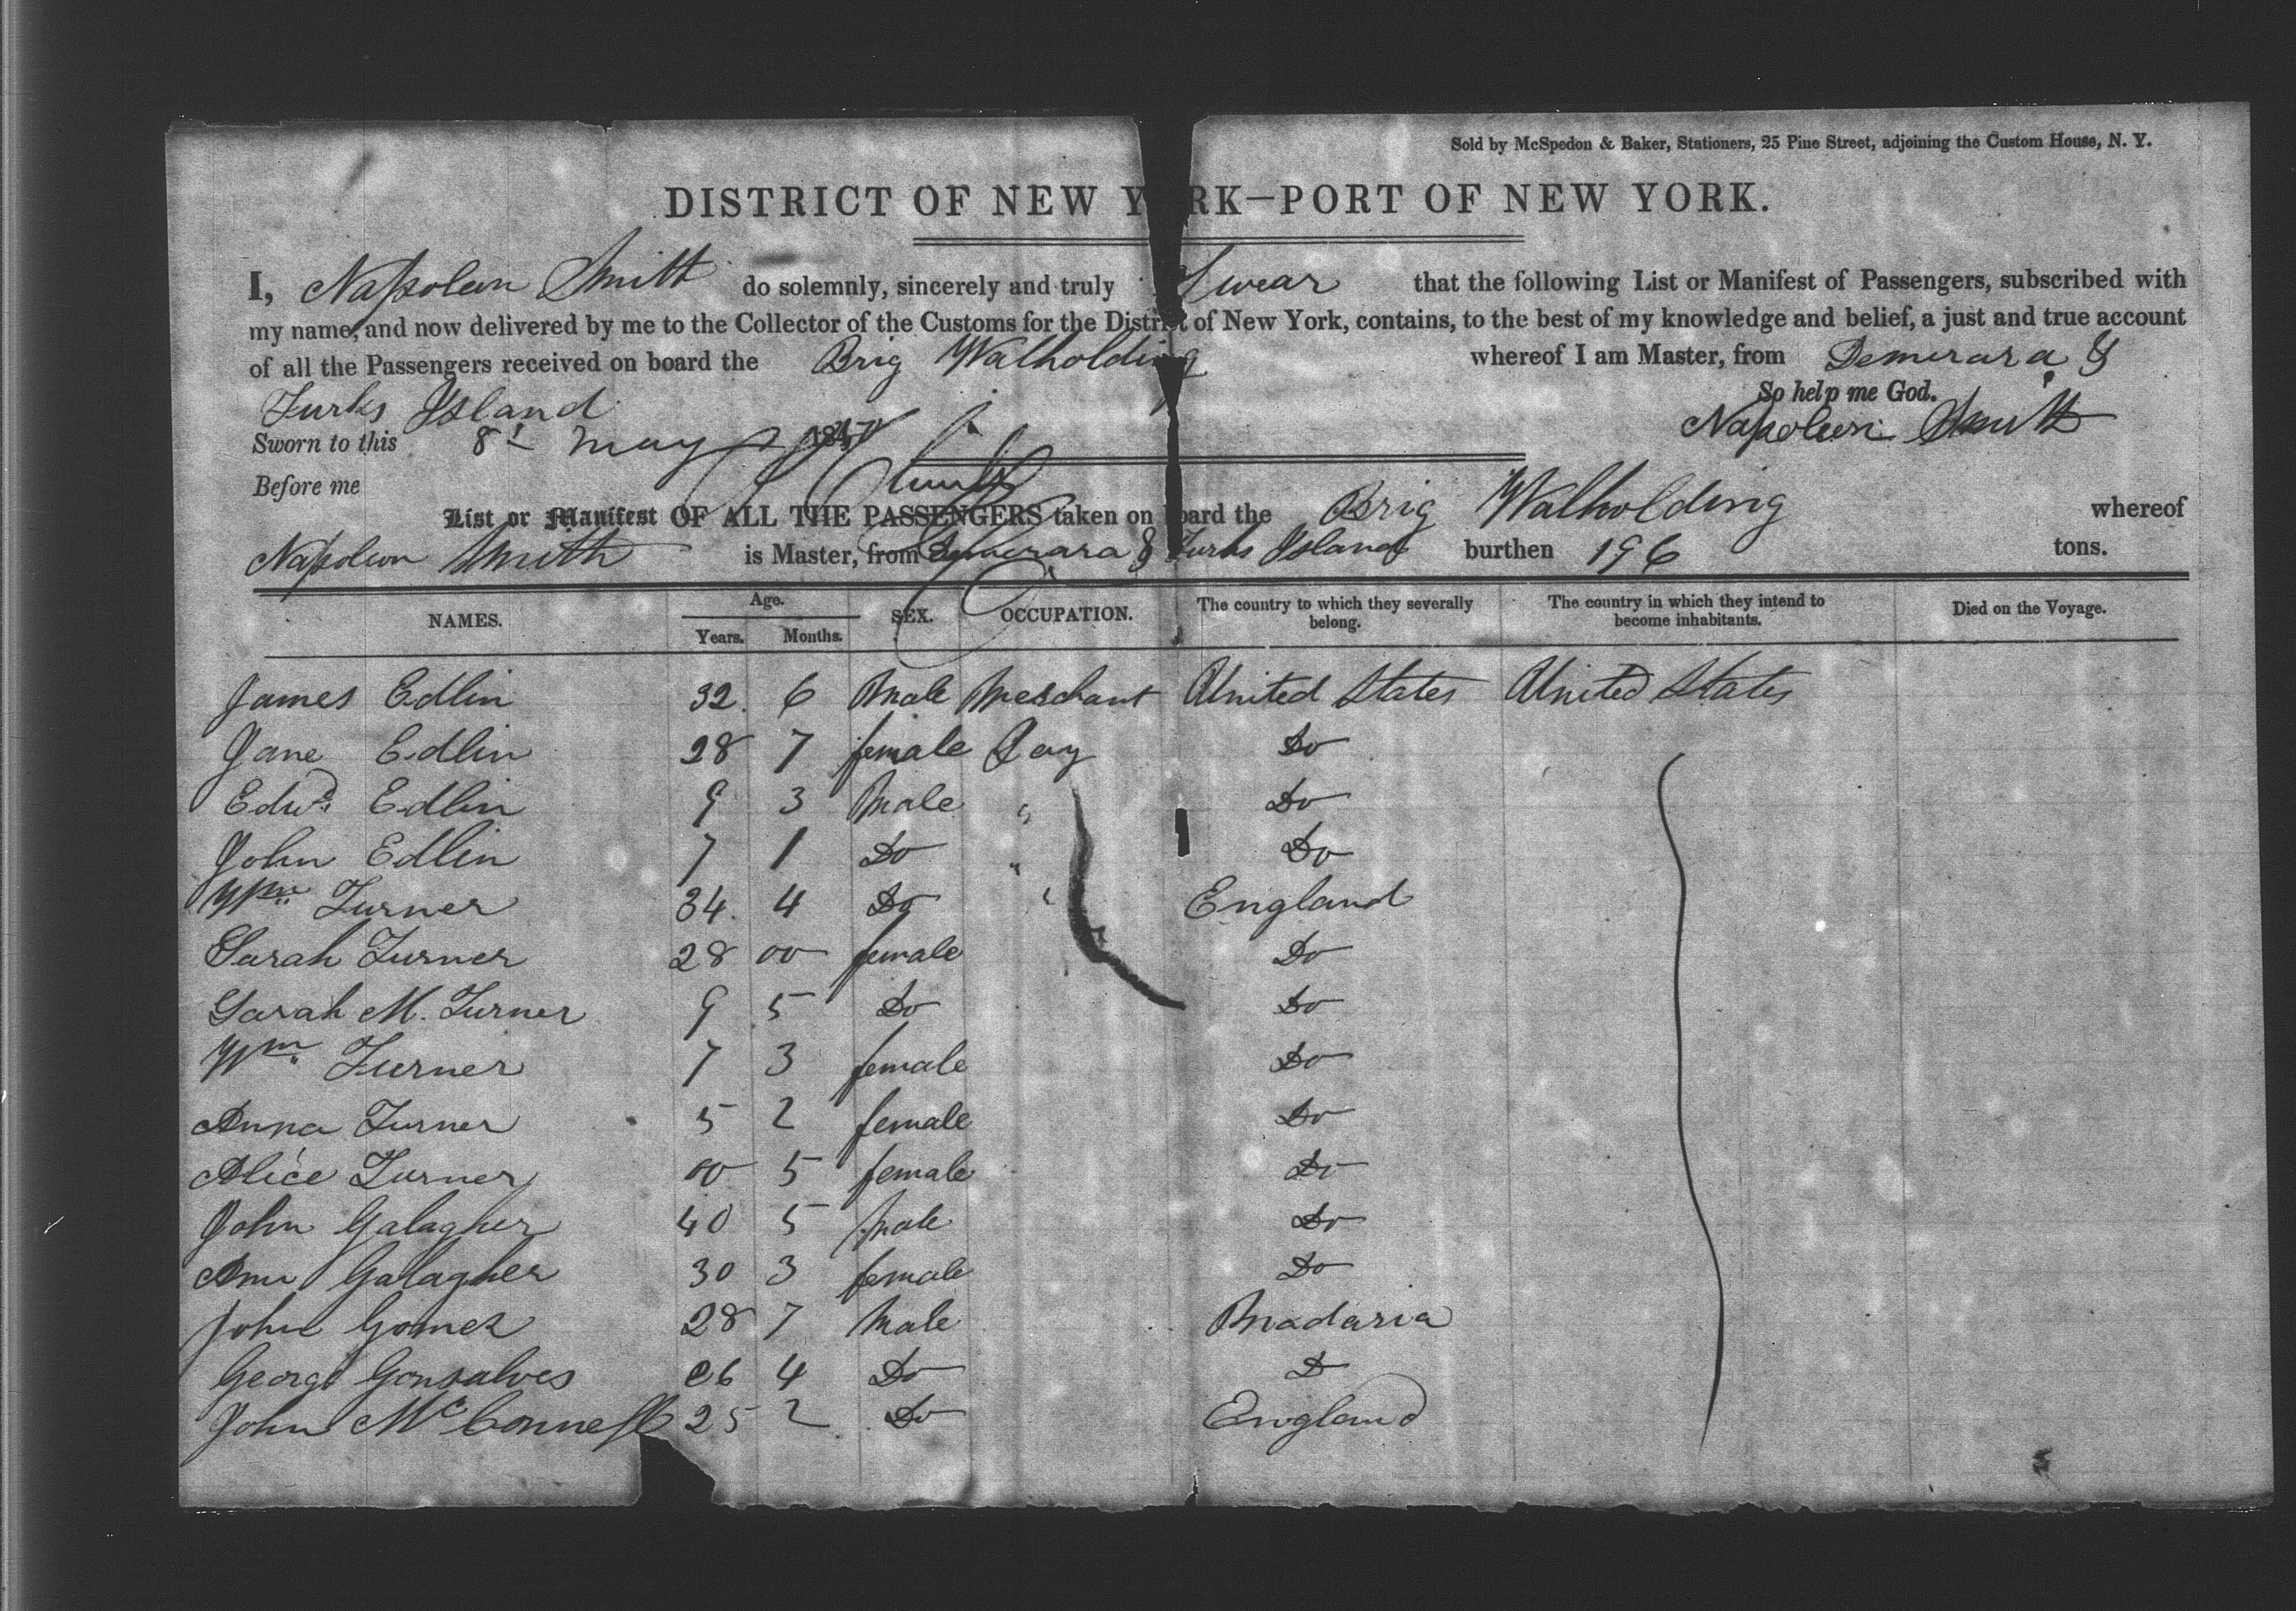 Sold by McSpedon & Baker, Stationers, 25 Pine Street, adjoining the Custom House, N. Y.
DISTRICT OF NEW Y RK—PORT OF NEW YORK.
I, Napoleon Smith do solemnly, sincerely and truly Swear that the following List or Manifest of Passengers, subscribed with
my name, and now delivered by me to the Collector of the Customs for the District of New York, contains, to the best of my knowledge and belief, a just and true account
of all the Passengers received on board the Brig Walholding whereof I am Master, from Demerara &
Turks Island So help me God.
Sworn to this 8th May Napoleon Smith
Before me
List or Manifest OF ALL THE PASSENGERS taken on board the Brig Walholding whereof
Napoleon Smith is Master, from Demerara & Turks Island burthen 196 tons.
NAMES. Age. Years. Months. SEX. OCCUPATION. The country to which they severally belong. The country in which they intend to become inhabitants. Died on the Voyage.
James Edlin 32. 6 Male Merchant United States United States
Jane Edlin 28 7 female Do
Edwd Edlin 9 3 Male " Do
John Edlin 7 1 Do " Do
Wm Turner 34. 4 Do " England
Sarah Turner 28 00 female Do
Sarah M. Turner 9 5 Do Do
Wm Turner 7 3 female Do
Anna Turner 5 2 female Do
Alice Turner 00 5 female Do
John Galagher 40 5 Male Do
Ann Galagher 30 3 female Do
John Gomez 28 7 Male Madaria
George Gonsalves 26 4 Do D
John McConnell 25 2 Do England